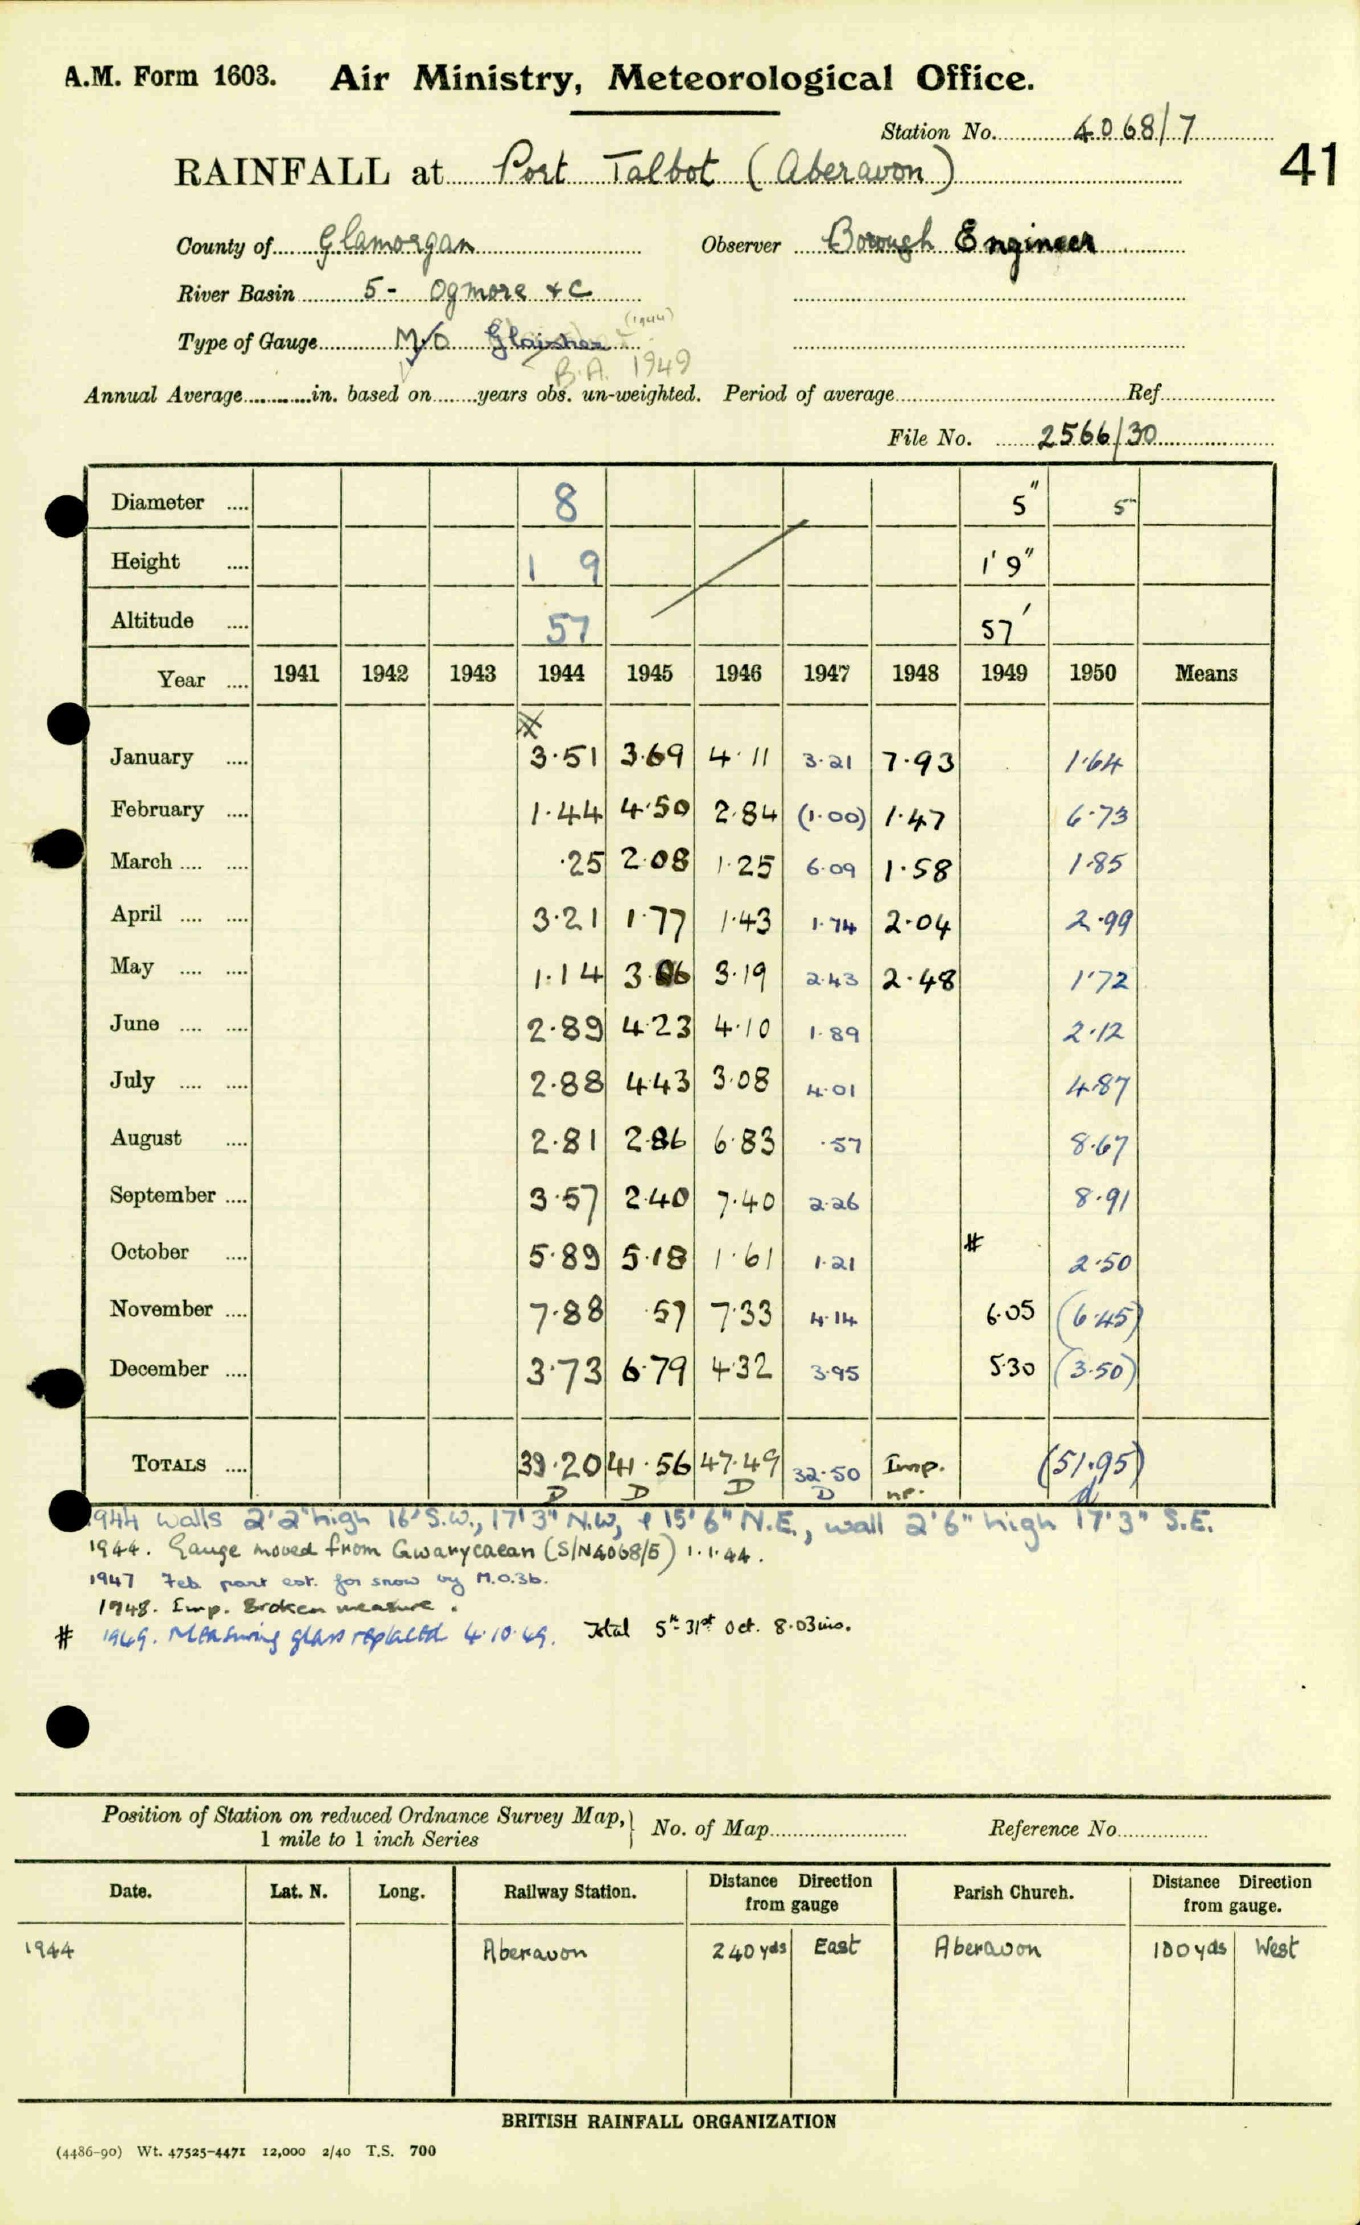 A.M. Form 1603. Air Ministry, Meteorological Office.
Station No. 4068/7
41
RAINFALL at Port Talbot (Aberavon)
County of Glamorgan Observer Borough Engineer
River Basin 5 - Ogmore &c
(1944)
Type of Gauge M/O Glaisher
B.A. 1949
Annual Average in. based on years obs. un-weighted. Period of average Ref
File No. 2566/30
Diameter 8 5" 5"
Height 1 9 1' 9"
Altitude 57 57'
Year 1941 1942 1943 1944 1945 1946 1947 1948 1949 1950 Means
January 3·51 3·69 4·11 3·21 7·93 1·64
February 1·44 4·50 2·84 (1·00) 1·47 6·73
March ·25 2·08 1·25 6·09 1·58 1·85
April 3·21 1·77 1·43 1·74 2·04 2·99
May 1·14 3·06 3·19 2·43 2·48 1·72
June 2·89 4·23 4·10 1·89 2·12
July 2·88 4·43 3·08 4·01 4·87
August 2·81 2·86 6·83 ·57 8·67
September 3·57 2·40 7·40 2·26 8·91
October 5·89 5·18 1·61 1·21 # 2·50
November 7·88 ·57 7·33 4·14 6·05 (6·45)
December 3·73 6·79 4·32 3·95 5·30 (3·50)
TOTALS 39·20 41·56 47·49 32·50 Imp. (51·95)
D D D D np. d
1944 walls 2'2" high 16' S.W., 17'3" N.W, & 15'6" N.E., wall 2'6" high 17'3" S.E.
1944. Gauge moved from Gwarycaean (S/N4068/5) 1.1.44.
1947 Feb part est. for snow by M.O.3b.
1948. Imp. Broken measure.
# 1949. Measuring glass replaced 4.10.49. Total 5th-31st Oct. 8·03 ins.
Position of Station on reduced Ordnance Survey Map, 1 mile to 1 inch Series No. of Map Reference No.
Date. Lat. N. Long. Railway Station. Distance Direction from gauge Parish Church. Distance Direction from gauge.
1944 Aberavon 240 yds East Aberavon 100 yds West
BRITISH RAINFALL ORGANIZATION
(4486-90) Wt. 47525-4471 12,000 2/40 T.S. 700